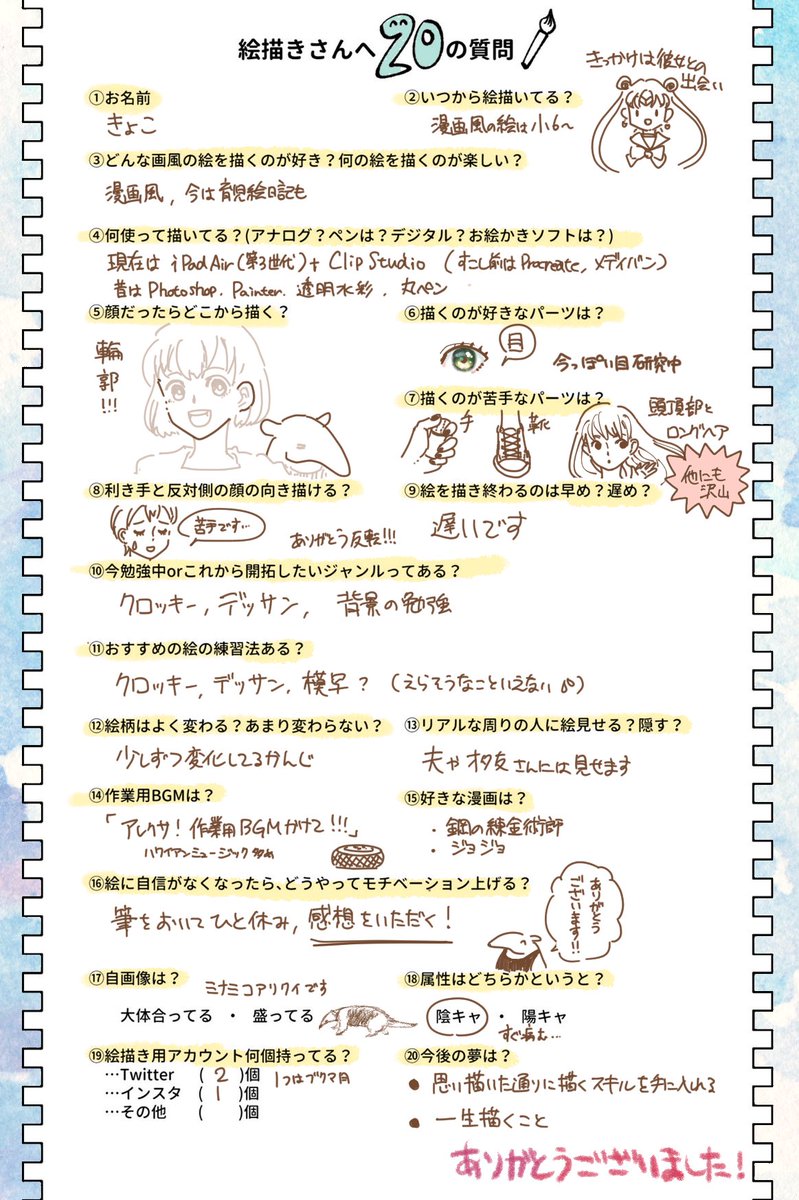 絵描きさんへ20の質問
きっかけは彼女との
出会い
①お名前
きょこ
②いつから絵描いてる？
漫画風の絵は小6〜
③どんな画風の絵を描くのが好き？何の絵を描くのが楽しい？
漫画風，今は育児絵日記も
④何使って描いてる？(アナログ？ペンは？デジタル？お絵かきソフトは？)
現在は iPad Air (第3世代) + Clip Studio (すこし前はProcreate，メディバン)
昔は Photoshop. Painter. 透明水彩，丸ペン
⑤顔だったらどこから描く？
輪郭!!!
⑥描くのが好きなパーツは？
目
今っぽい目研究中
⑦描くのが苦手なパーツは？
手
靴
頭頂部と
ロングヘア
他にも
沢山
⑧利き手と反対側の顔の向き描ける？
苦手です…
ありがとう反転!!!
⑨絵を描き終わるのは早め？遅め？
遅いです
⑩今勉強中orこれから開拓したいジャンルってある？
クロッキー，デッサン， 背景の勉強
⑪おすすめの絵の練習法ある？
クロッキー，デッサン．模写？ (えらそうなこといえない)
⑫絵柄はよく変わる？あまり変わらない？
少しずつ変化してるかんじ
⑬リアルな周りの人に絵見せる？隠す？
夫やオタ友さんには見せます
⑭作業用BGMは？
「アレクサ！作業用BGMかけて!!!」
ハワイアンミュージック多め
⑮好きな漫画は？
・鋼の錬金術師
・ジョジョ
⑯絵に自信がなくなったら、どうやってモチベーション上げる？
筆をおいてひと休み，感想をいただく！
ありがとう
ございます!!
⑰自画像は？
ミナミコアリクイです
大体合ってる ・ 盛ってる
⑱属性はどちらかというと？
陰キャ ・ 陽キャ
すぐ病む…
⑲絵描き用アカウント何個持ってる？
…Twitter (2)個 1つはブクマ用
…インスタ (1)個
…その他 ( )個
⑳今後の夢は？
● 思い描いた通りに描くスキルを手に入れる
● 一生描くこと
ありがとうございました！